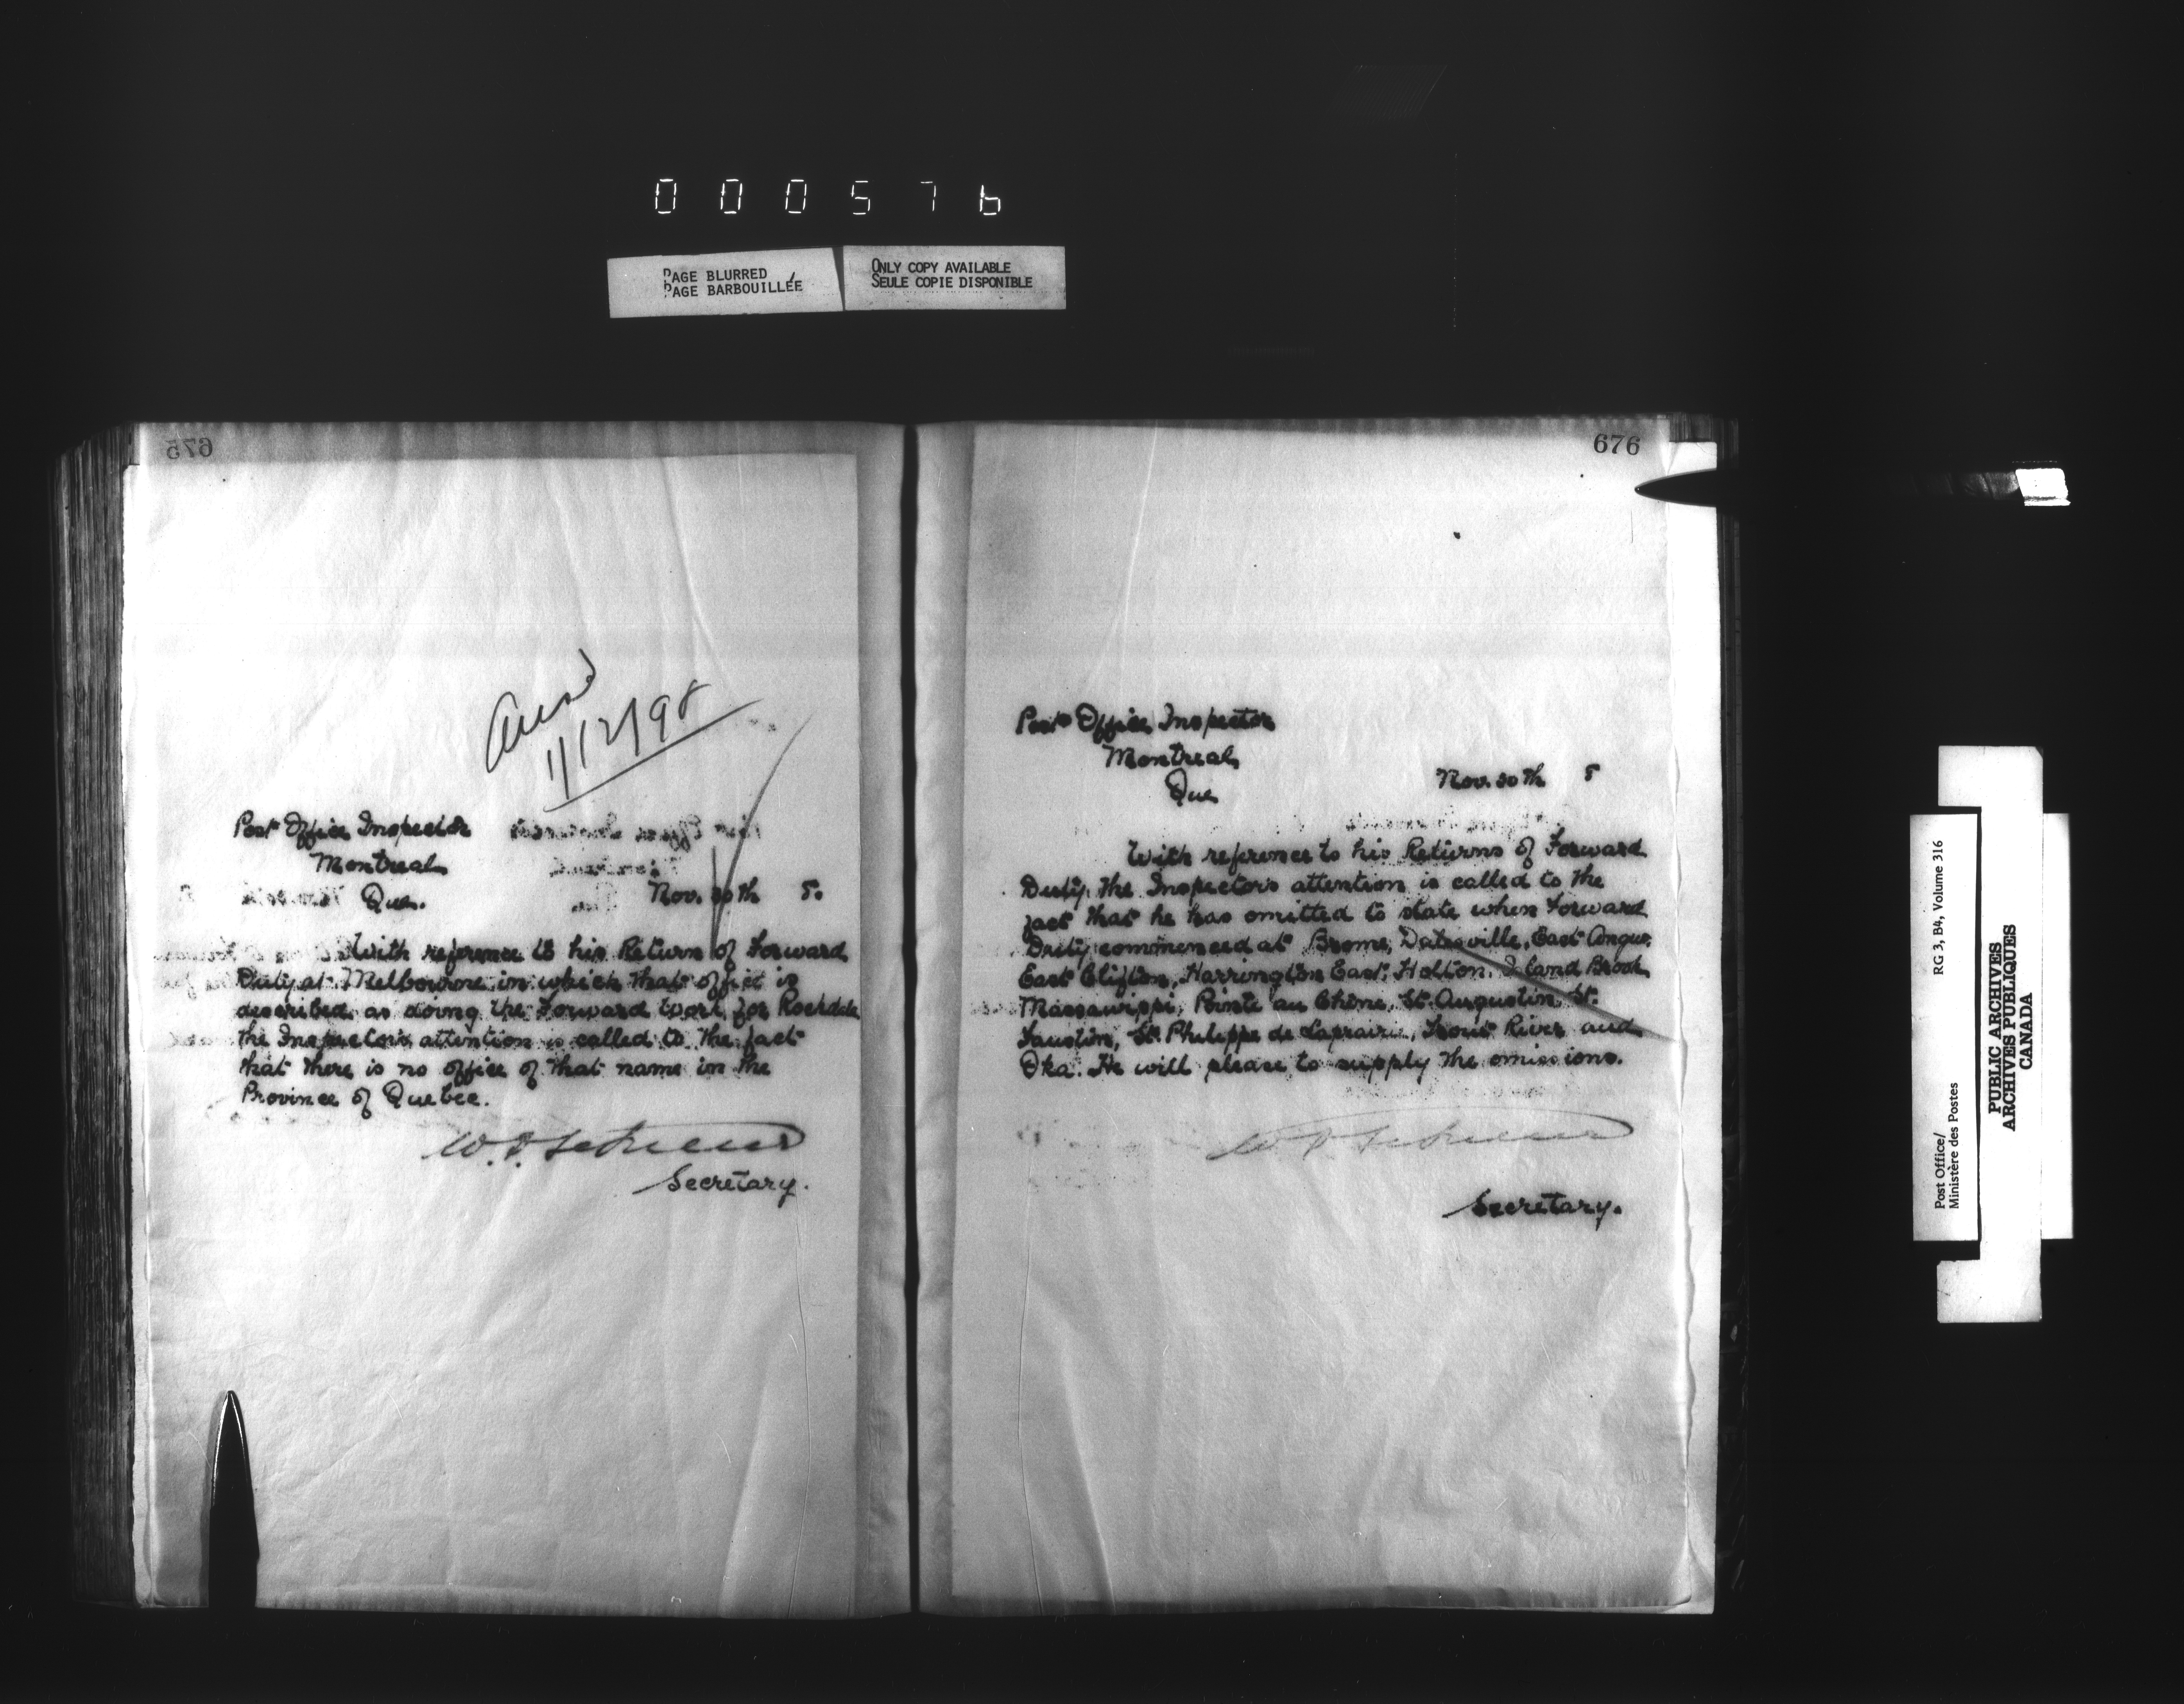 000576
PAGE BLURRED
PAGE BARBOUILLÉE
ONLY COPY AVAILABLE
SEULE COPIE DISPONIBLE
675
1/12/98
Post Office Inspector
Montreal
Que.
Nov. 30th 5.
With reference to his Return of Forward
Duty at Melbourne in which that office is
described as doing the Forward work for Rockdale
the Inspector's attention is called to the fact
that there is no office of that name in the
Province of Quebec.
Secretary.
676
Post Office Inspector
Montreal
Que
Nov. 30th 5
With reference to his Returns of Forward
Duty, the Inspector's attention is called to the
fact that he has omitted to state when Forward
Duty commenced at Brome, Datesville, East Angus,
East Clifton, Harrington East, Holton, Island Brook
Massawippi, Pointe au Chêne, St. Augustin, St.
Faustin, St. Philippe de Laprairie, Trout River and
Oka. He will please to supply the omissions.
Secretary.
Post Office/
Ministère des Postes
RG 3, B4, Volume 316
PUBLIC ARCHIVES
ARCHIVES PUBLIQUES
CANADA